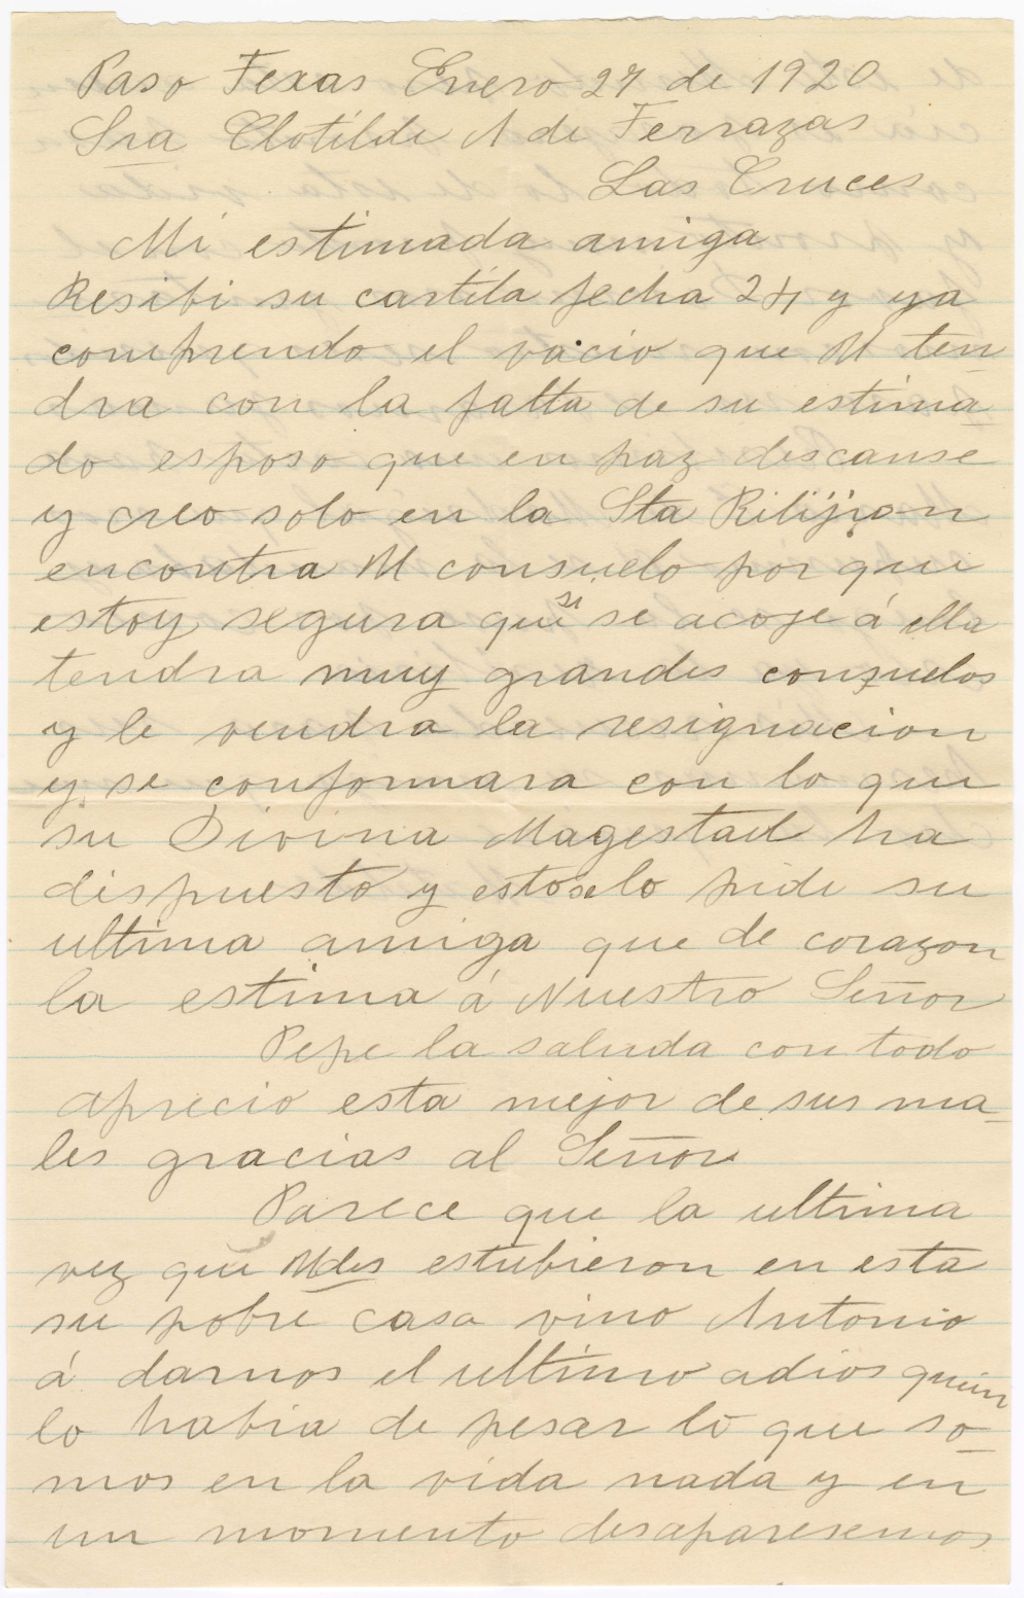 Paso Texas Enero 27 de 1920
Sra Clotilde A de Terrazas
Las Cruces
Mi estimada amiga
Resibi su cartita fecha 24 y ya
comprendo el vacio que U ten
dra con la falta de su estima
do esposo que en paz descanse
y creo solo en la Sta Rilijion
encontra U consuelo por que
estoy segura que si se acoje á ella
tendra muy grandes consuelos
y le vendra la resignacion
y se conformara con lo que
su Divina Magestad ha
dispuesto y estoselo pide su
ultima amiga que de corazon
la estima á Nuestro Señor
Pepe la saluda con todo
aprecio esta mejor de sus ma-
les gracias al Señor
Parece que la ultima
vez que Udes estubieron en esta
su pobre casa vino Antonio
á darnos el ultimo adios quien
lo habia de pesar lo que so-
mos en la vida nada y en
un momento desaparesemos